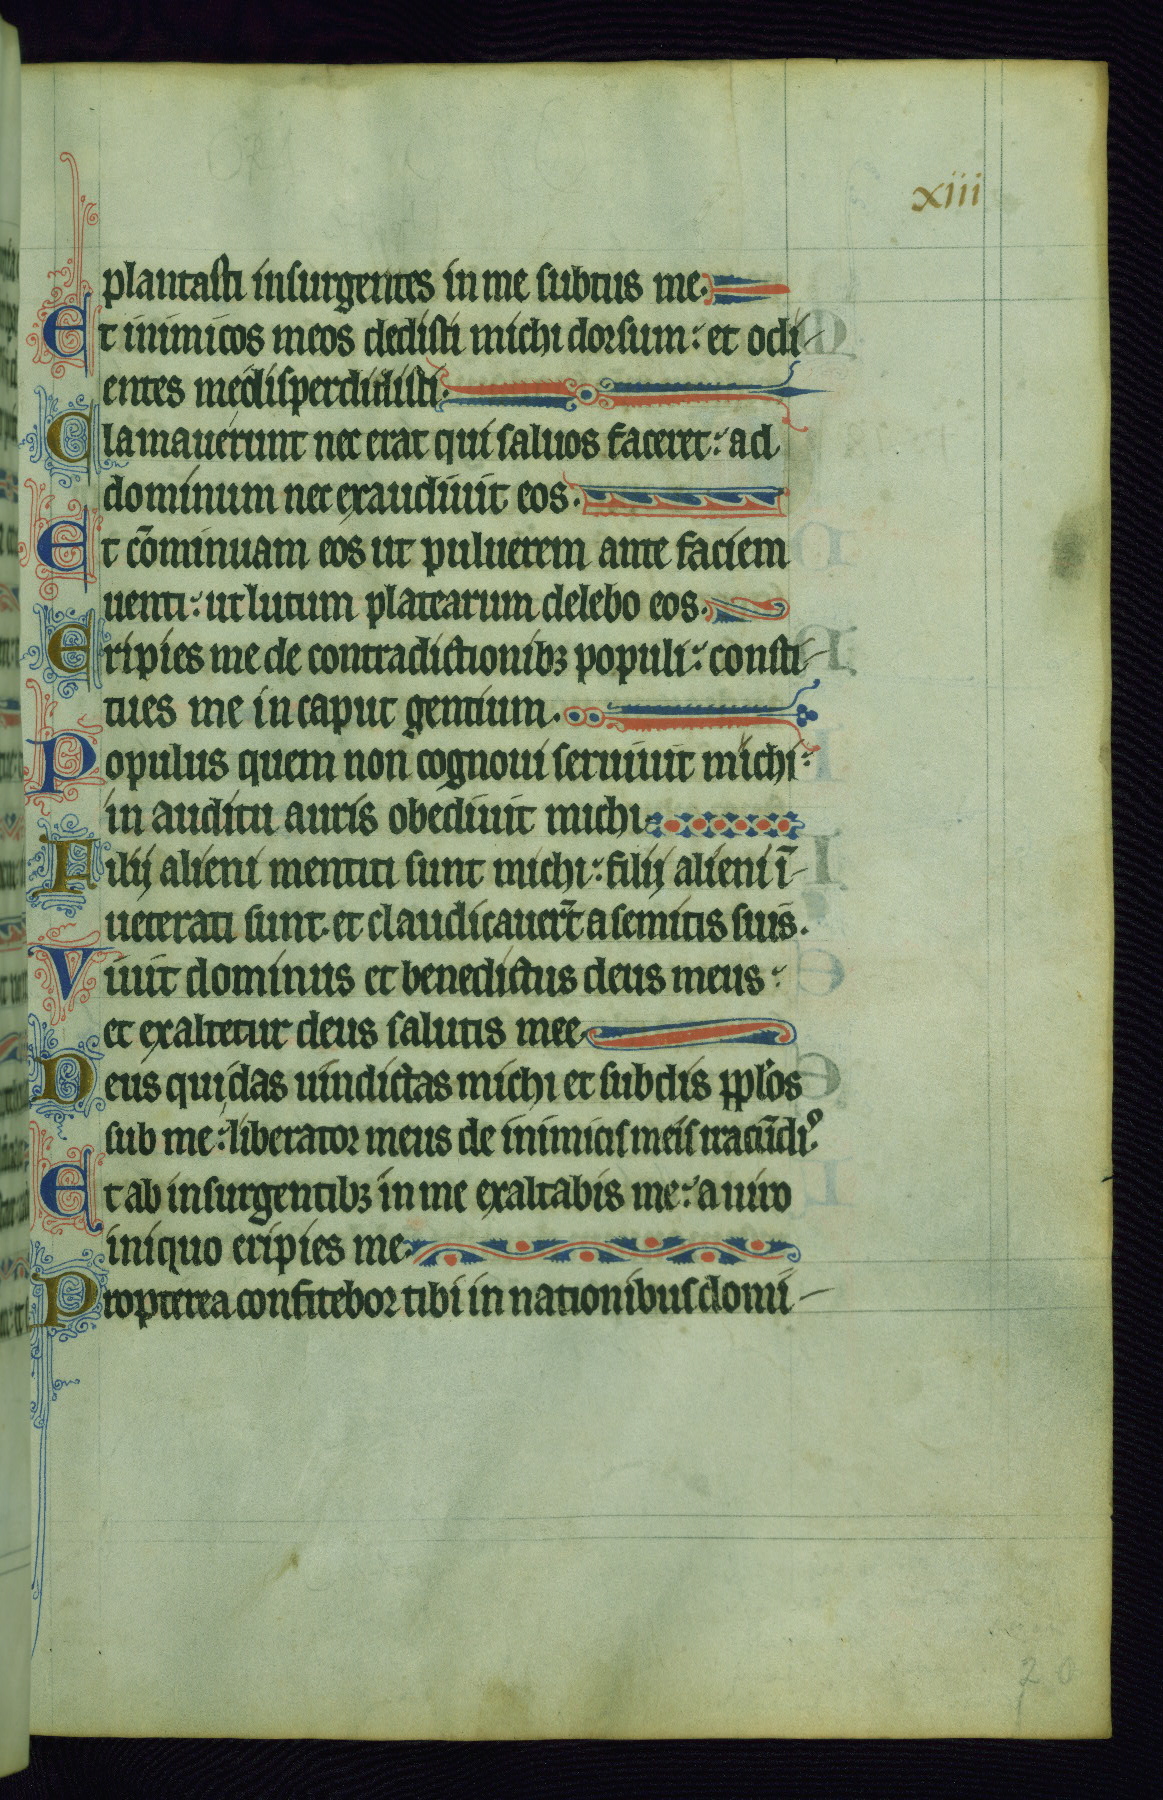 xiii
plantasti insurgentes in me subtus me.
Et inimicos meos dedisti michi dorsum: et odi-
entes me disperdidisti.
Clamauerunt nec erat qui saluos faceret: ad
dominum nec exaudiuit eos.
Et cōminuam eos ut puluerem ante faciem
uenti: ut lutum platearum delebo eos.
Eripies me de contradictionibꝫ populi: consti-
tues me in caput gentium.
Populus quem non cognoui seruiuit michi:
in auditu auris obediuit michi.
Filij alieni mentiti sunt michi: filij alieni ī-
ueterati sunt. et claudicauer̄t a semitis suis.
Viuit dominus et benedictus deus meus:
et exaltetur deus salutis mee.
Deus qui das uindictas michi et subdis pp̄los
sub me: liberator meus de inimicis meis iracūdiꝰ
Et ab insurgentibꝫ in me exaltabis me: a uiro
iniquo eripies me.
Propterea confitebor tibi in nationibus domi-
20